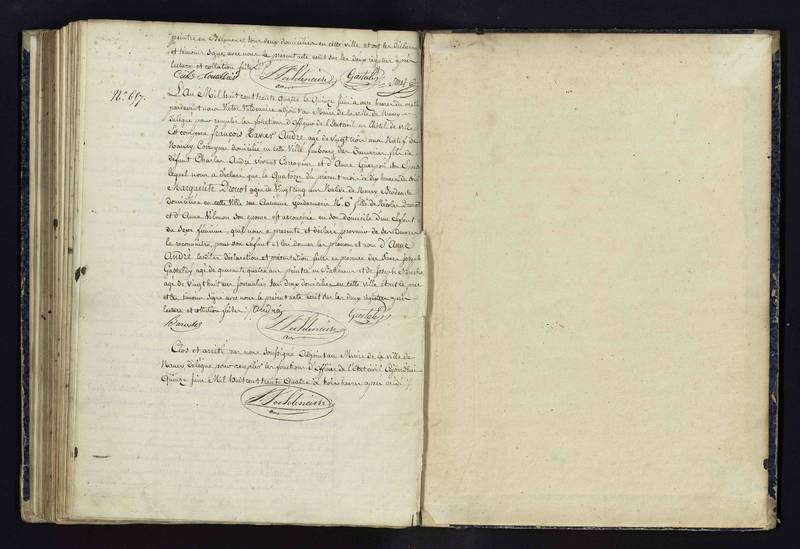 peintre en Bâtiment tous deux domiciliés en cette ville et ont les déclarans
et témoins signé avec nous le présent acte écrit sur les deux registres après
lecture et collation faites
Gastaldy
N.° 617.
L'An Mil huit cent trente quatre le Quinze Juin à heures du matin
pardevant nous Adjoint au Maire de la ville de Nancy
délégué pour remplir les fonctions d'Officier de l'Etat civil en l'hôtel de ville
Est comparu François Xavier André agé de vingt trois ans Natif de
Nancy Cordonnier domicilié en cette Ville faubourg des fils de
défunt Charles André vivant et d'Anne
lequel nous a déclaré que le Quatorze du présent mois à dix heures du soir
Marguerite Drouot agée de Vingt cinq ans Native de Nancy Brodeuse
domiciliée en cette Ville rue Ancienne Gendarmerie N.° 6 fille de Nicolas Drouot
et d'Anne son épouse est accouchée en son domicile d'un Enfant
du Sexe féminin qu'il nous a présenté et déclaré provenir de ses œuvres
le reconnaitre pour son Enfant et lui donner les prénom et nom d'Anne
André lesdites déclaration et présentation faites en présence des Sieurs Joseph
Gastaldy agé de quarante quatre ans peintre en Bâtiment et de Joseph
agé de Vingt huit ans Journalier tous deux domiciliés en cette ville et ont le père
et les témoins signé avec nous le présent acte écrit sur les deux registres après
lecture et collation faites /. André Gastaldy
Clos et arrêté par nous soussigné Adjoint au Maire de la ville de
Nancy délégué pour remplir les fonctions d'Officier de l'Etat civil Cejourd'hui
Quinze Juin Mil huit cent trente Quatre à trois heures après midi /.